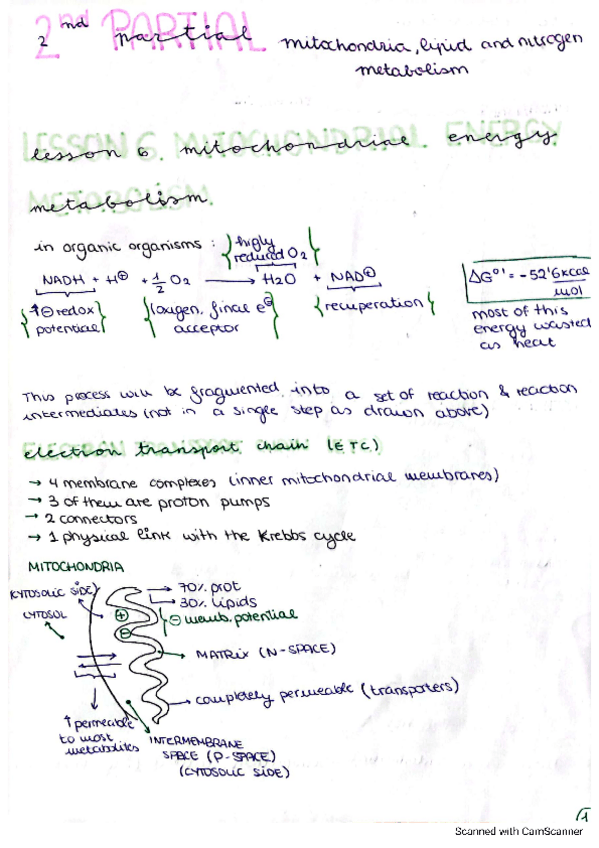 2nd PARTIAL
2nd partial mitochondria, lipid and nitrogen
metabolism
LESSON 6. MITOCHONDRIAL ENERGY
lesson 6. mitochondrial energy
METABOLISM.
metabolism.
in organic organisms: higly
reduced O2
NADH + H⊕ + 1/2 O2 → H2O + NAD⊕
ΔG°' = -52'6 kcal/mol
↑⊖ redox
potential
(oxigen, final e⊖
acceptor
recuperation
most of this
energy wasted
as heat
This process will be fragmented into a set of reaction & reaction
intermediates (not in a single step as drawn above)
electron transport chain (ETC)
→ 4 membrane complexes (inner mitochondrial membranes)
→ 3 of them are proton pumps
→ 2 connectors
→ 1 physical link with the Krebbs cycle
MITOCHONDRIA
(CYTOSOLIC SIDE)
CYTOSOL
→ 70% prot
→ 30% lipids
⊖ memb. potential
⊕
⊖
MATRIX (N-SPACE)
completely permeable (transporters)
↑ permeable
to most
metabolites
INTERMEMBRANE
SPACE (P-SPACE)
(CYTOSOLIC SIDE)
1
Scanned with CamScanner